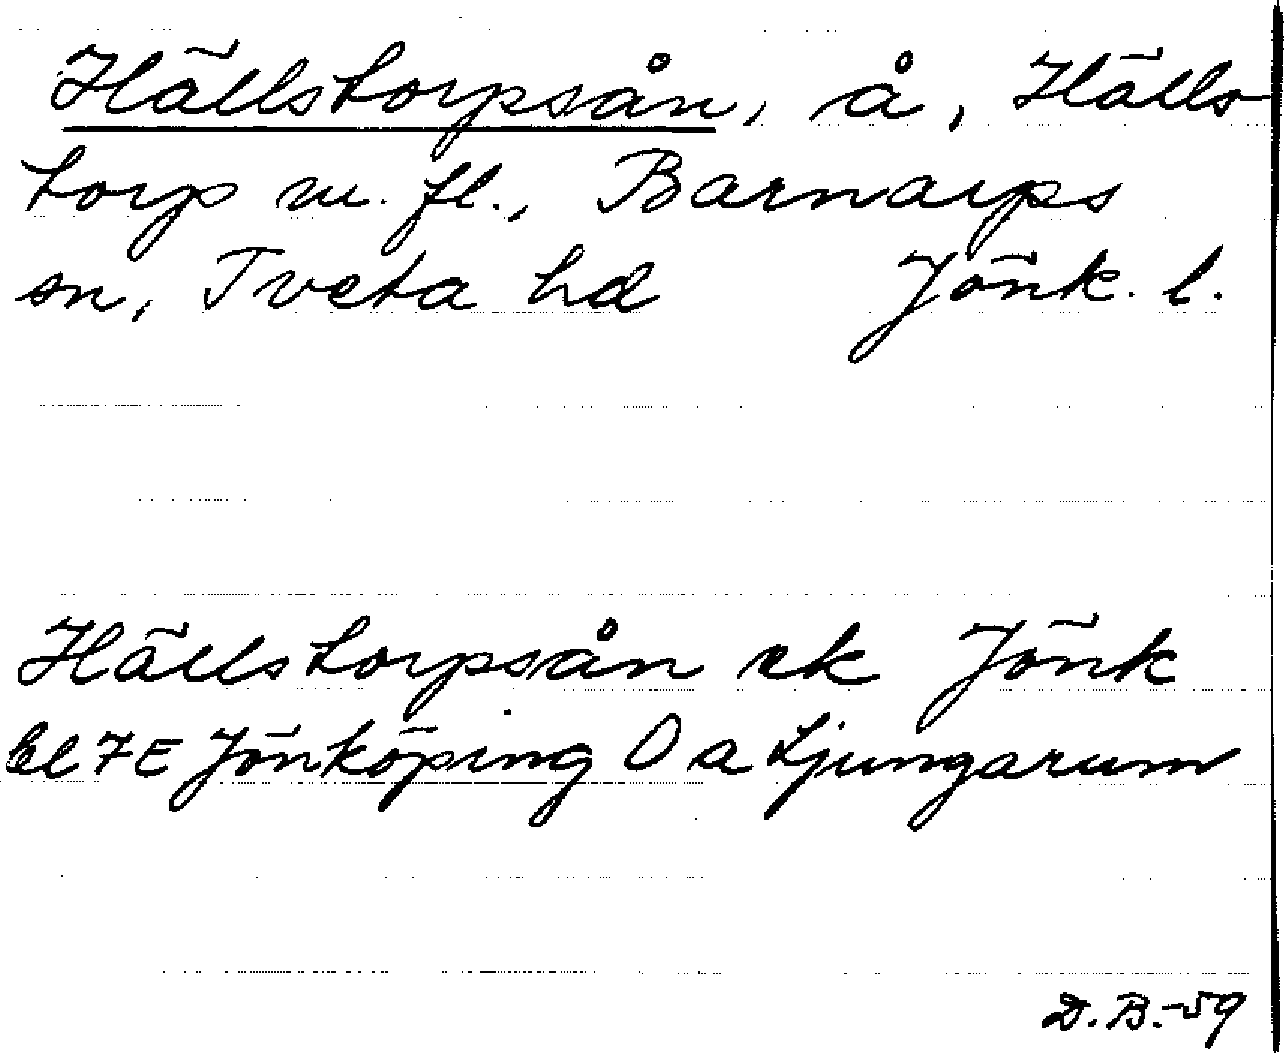 Hällstorpsån, å, Hälls
torp m. fl., Barnarps
sn, Tveta hd Jönk. l.
Hällstorpsån ek Jönk
bl 7E Jönköping O a Ljungarum
D. B.-59